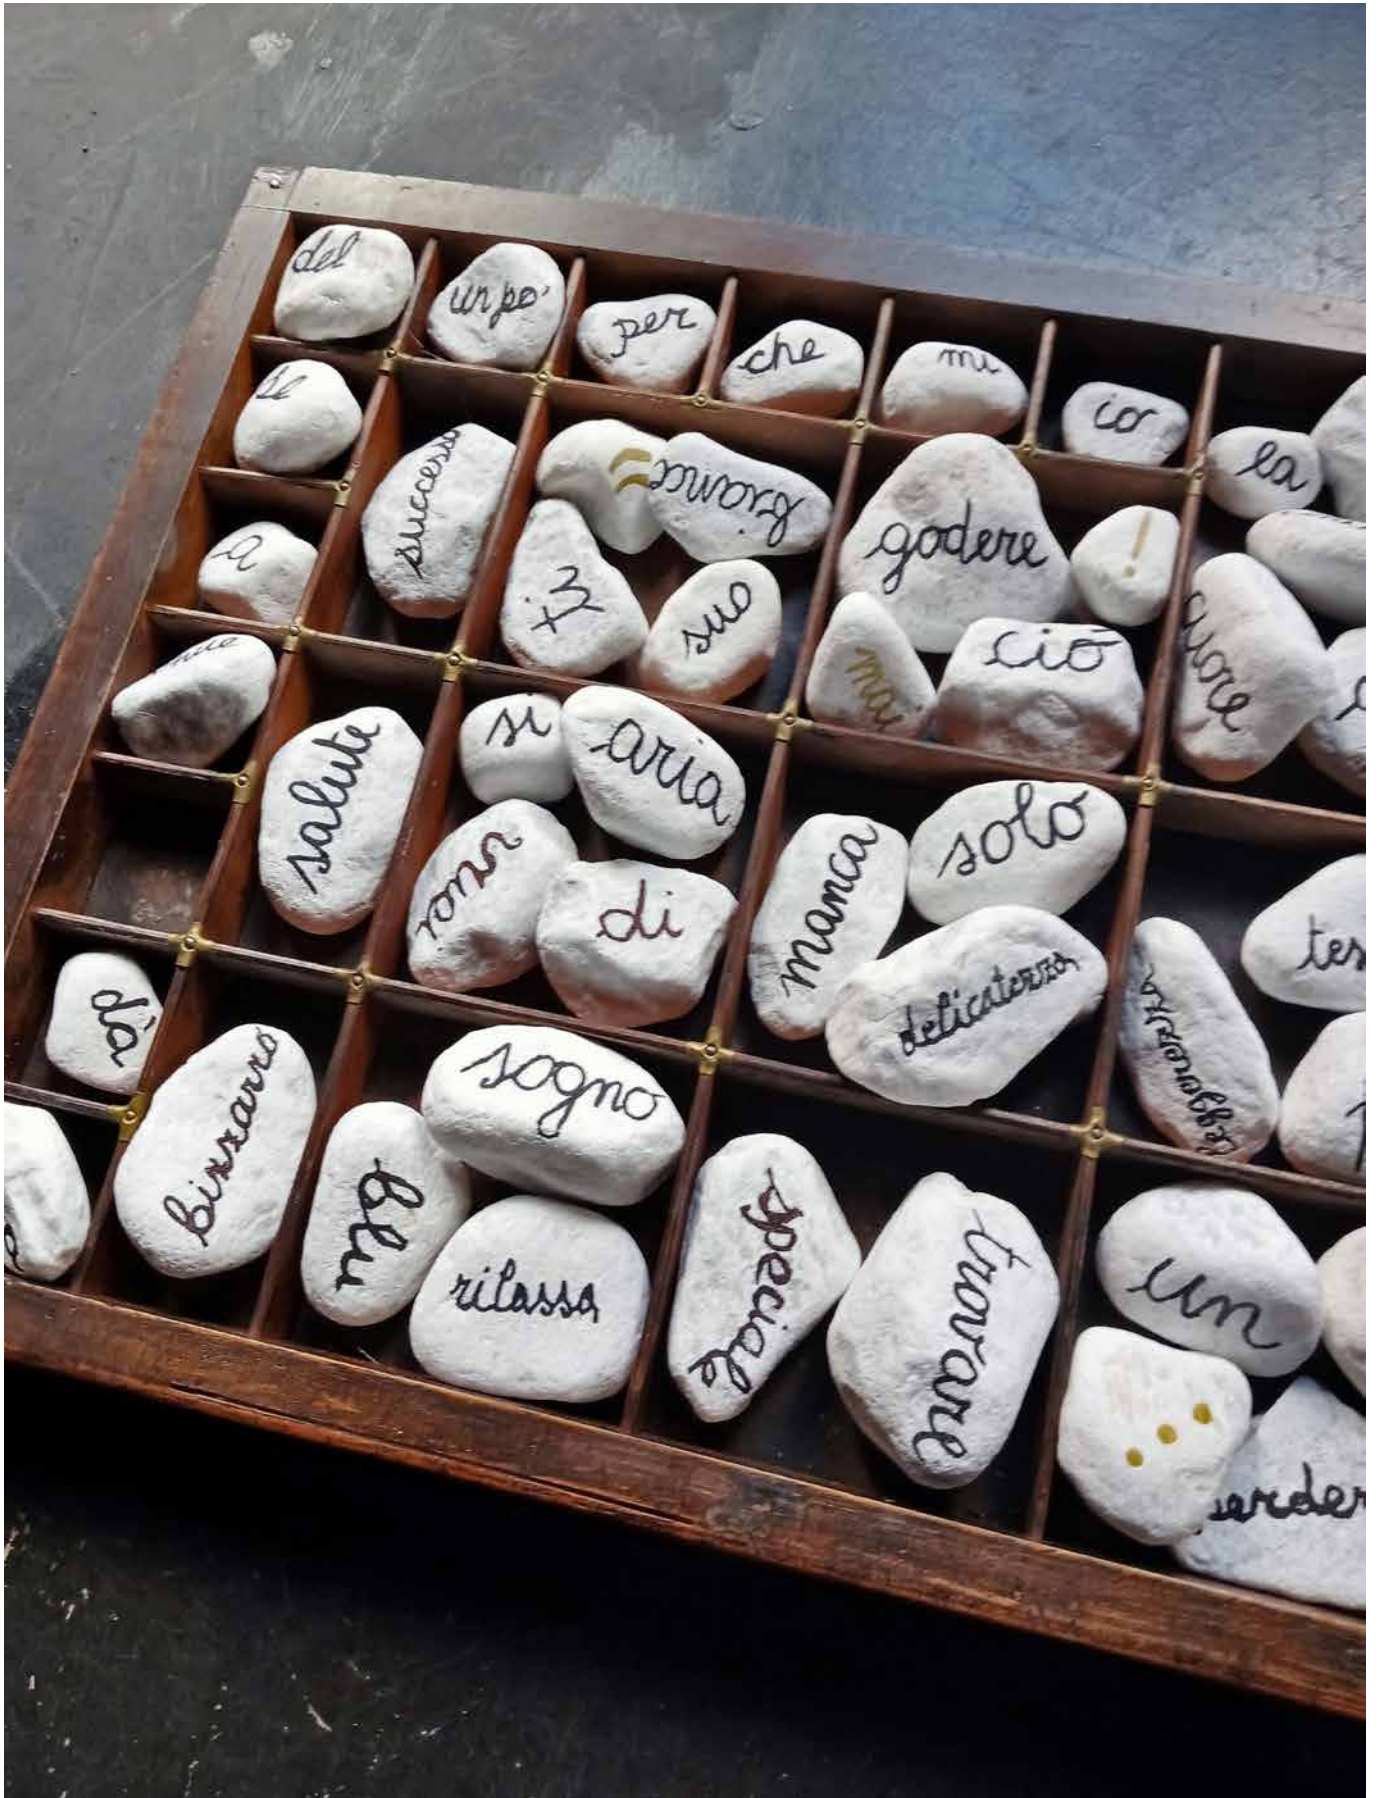 del
un po'
per
che
mi
io
la
successo
"
bianco
godere
!
a
ti
suo
mai
ciò
cuore
salute
si
aria
vuoi
di
manca
solo
delicatezza
tes
leggerezza
dà
bizzarro
sogno
blu
rilassa
speciale
trovare
un
...